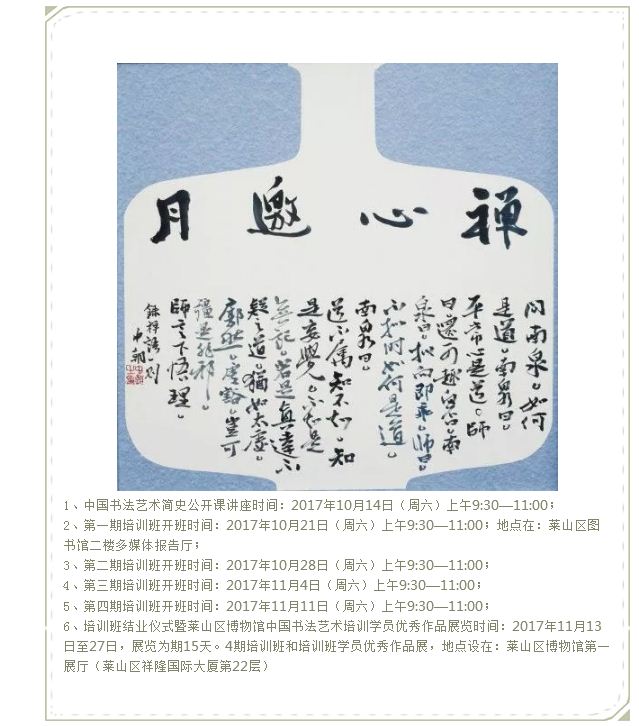 禅心邀月
问南泉。如何
是道。南泉曰。
平常心是道。师
曰。還可趣向否。南
泉曰。拟向即乖。师曰。
如何是道。
南泉曰。
道不属知不知。知
是妄覺。不知是
無记。若是真達不
疑之道。猶如太虚。
廓然。虚豁。豈可
强是非耶。
师言下悟理。
錄禅语一则
1、中国书法艺术简史公开课讲座时间：2017年10月14日（周六）上午9:30—11:00；
2、第一期培训班开班时间：2017年10月21日（周六）上午9:30—11:00；地点在：莱山区图
书馆二楼多媒体报告厅；
3、第二期培训班开班时间：2017年10月28日（周六）上午9:30—11:00；
4、第三期培训班开班时间：2017年11月4日（周六）上午9:30—11:00；
5、第四期培训班开班时间：2017年11月11日（周六）上午9:30—11:00；
6、培训班结业仪式暨莱山区博物馆中国书法艺术培训学员优秀作品展览时间：2017年11月13
日至27日，展览为期15天。4期培训班和培训班学员优秀作品展，地点设在：莱山区博物馆第一
展厅（莱山区祥隆国际大厦第22层）